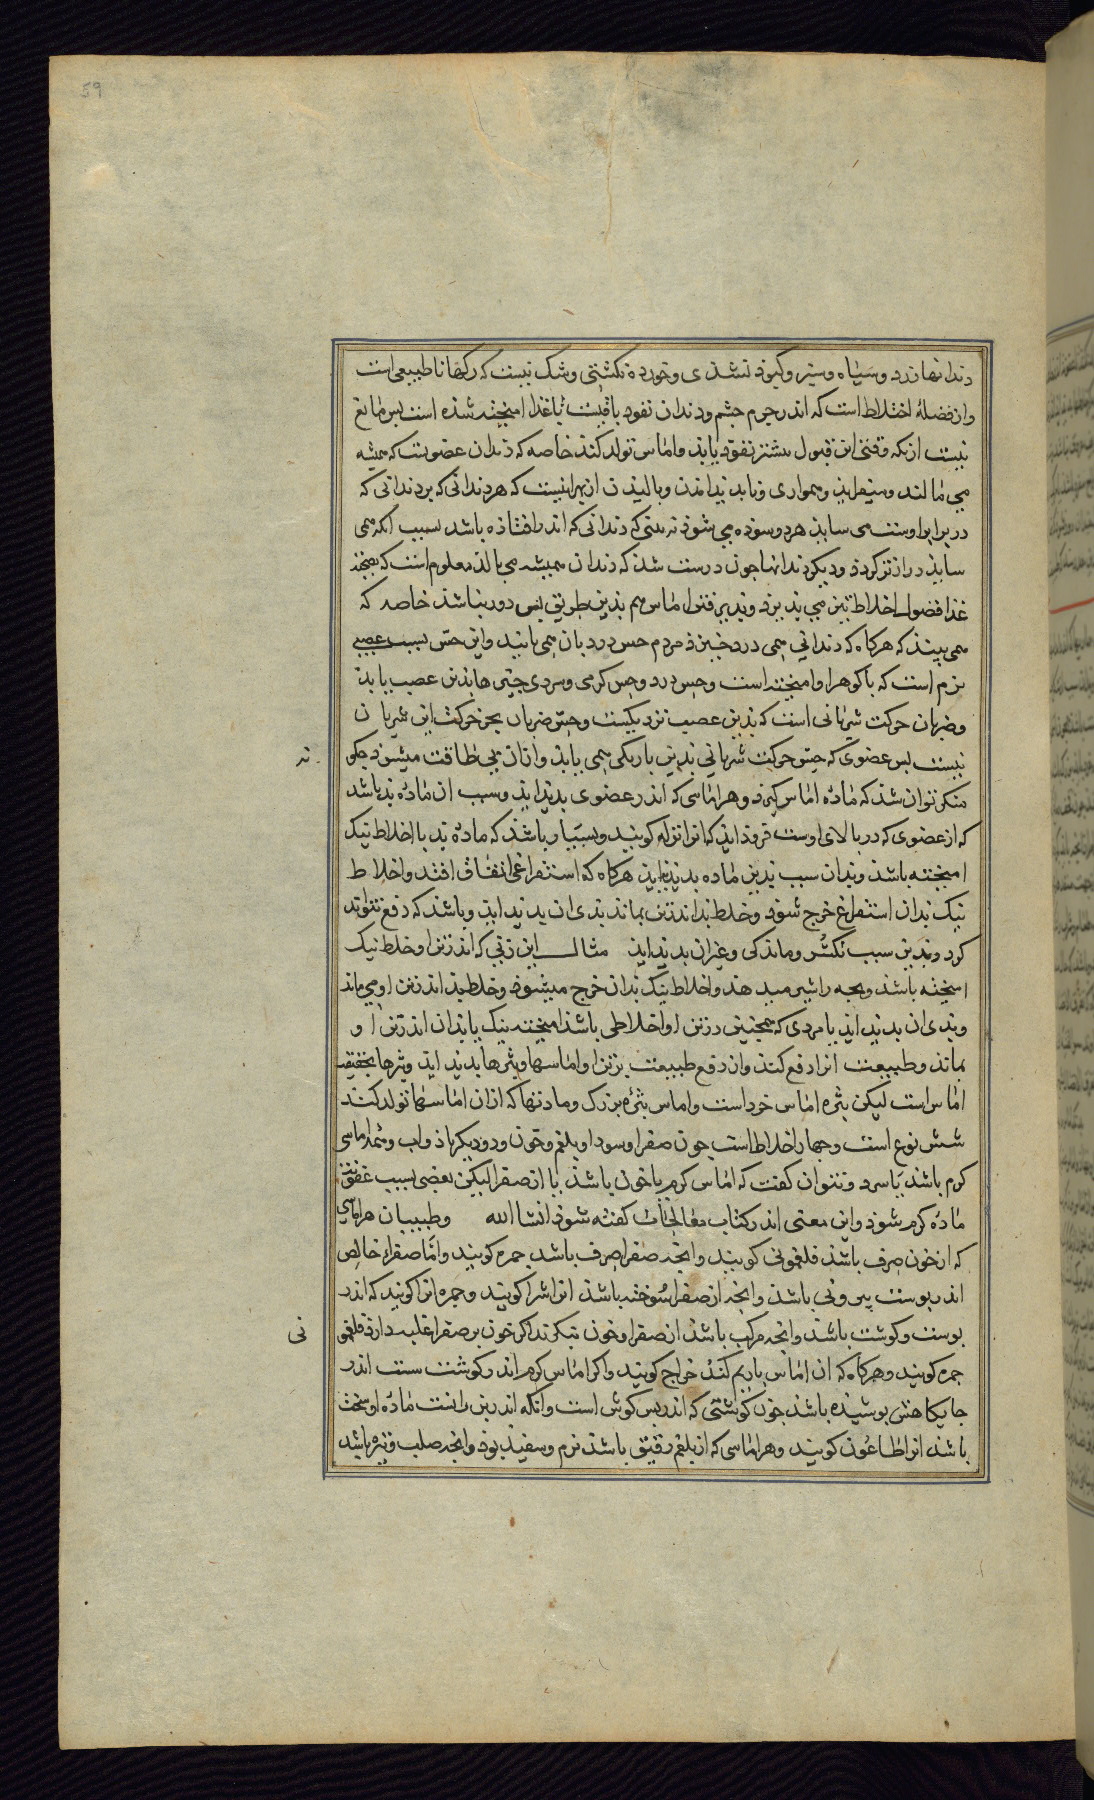 59
دندانها زرد و سیاه و سبز و کبود نشذی و خورده نکشتی و شک نیست که رنکها نا طبیعی است
وان فضلهٔ اخلاط است که اندر جرم چشم و دندان نفوذ یافتست یا غذا امیخته شذه است بس مانع
نیست ازنکه وقتی این قبول بیشتر نفوذ یابذ و اماس تولد کند خاصه که دندان عضویست که همیشه
می مالند و میفزاید و همواری و زیاد بذیرامدن و بالیدن از بهر اینست که هر دندانی که بر دندانی که
در برابر اوست می ساید هر دو سوده می شوذ نه بینی که دندانی که اندر افتاذه باشد بسبب انکه نمی
ساید درازتر کردذ و دیکر دندانها جون درست شذ که دندان همیشه می بالذ معلوم است که همجند
غذا فضول اخلاط نیز می بذیرد و بذیرفتن اماس هم بذین طریق بس دور نباشذ خاصه که
همی بینذ که هرکاه که دندانی همی درد خیزذ مردم حس درد بان همی یابند و این حس بسبب عصبی
نرم است که با کوهر او امیخته است و حس درد و حس کرمی و سردی جیزها بذین عصب یابذ
و ضربان حرکت شریانی است که بذین عصب نزدیکست و حس ضربان بجز حرکت این شریان
نیست بس عضوی که حس حرکت شریانی بذین باریکی همی یابذ و ازان بی طاقت میشوذ جکو
نه
منکر توان شذ که مادّه اماس کیرذ و هر اماسی که اندر عضوی بدیذ ایذ و سبب ان مادّه بذ باشد
که از عضوی که در بالای اوست فروذ ایذ که انرا نزله کویند و بسیار باشذ که مادّه بذ با اخلاط نیک
امیخته باشذ و بدان سبب بذین ماده بدیذ نیایذ هرکاه که استفراغی اتفاق افتد و اخلاط
نیک بدان استفراغ خرج شوذ و خلط بذ اندر تن بماند بذی ان بدیذ ایذ و باشذ که دفع نتواند
کرد و بذین سبب تکسّر و ماندکی و غیر ان بدیذ ایذ مثال این زنی که اندر تن او خلط نیک
امیخته باشذ و بجه را شیر میدهذ و اخلاط نیک بدان خرج میشوذ و خلط بذ اندر تن او می ماند
و بذی ان بدیذ ایذ یا مردی که همجنین در تن او اخلاطی باشذ امیخته نیک یا بذ ان اندر تن او
بماند و طبیعت انرا دفع کند وان دفع طبیعت بر تن او اماسها و بثرها بدیذ ایذ و بثرها بحقیقت
اماس است لیکن بثره اماس خرد است و اماس بثرهٔ بزرک و مادتها که ازان اماسها تولد کند
شش نوع است و جهار اخلاط است جون صفرا و سودا و بلغم و خون و دو دیکر باذ و اب و همه اماسی
کرم باشد یا سرد و نتوان کفت که اماس کرم یا خون باشذ یا از صفرا لیکن بعضی بسبب عفونت
مادّه کرم شوذ و این معنی اندر کتاب معالجات کفته شوذ انشا الله و طبیبان هر اماسی
که از خون صرف باشذ فلغمونی کویند و انجه صفرا صرف باشد جمره کویند و امّا صفراء خالص
اندر بوست بیرونی باشذ و انجه از صفرا سوخته باشذ انرا شرا کویند و جمره انرا کویند که اندر
بوست و کوشت باشذ و انجه مرکب باشذ از صفرا و خون بنکرند اکر خون بر صفرا غلبه دارذ فلغمو
نی
جمره کویند و هرکاه که ان اماس یا ریم کند خراج کویند و اکر اماس کرم اندر کوشت سست اندر
جایکاهش بوشیده باشذ جون کوشتی که اندر بس کوش است و انکه اندر بن رانست مادّه او سخت
باشد انرا طاعون کویند و هر اماسی که از بلغم رقیق باشذ نرم و سفیذ بوذ و انجه صلب و تیره باشد